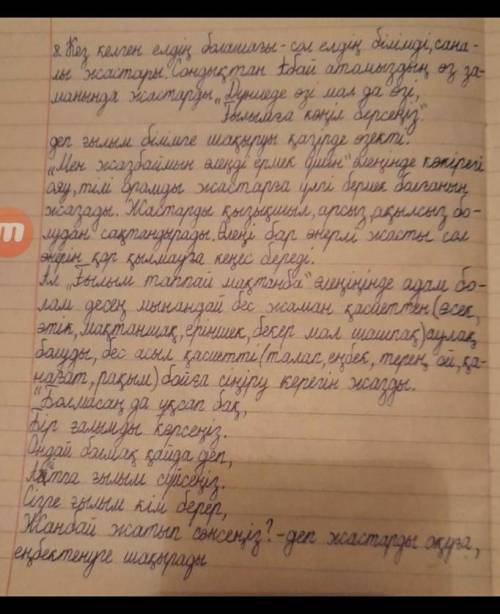 8. Кез келген елдің болашағы - сол елдің білімді, сана-
лы жастары. Сондықтан Абай атамыздың өз за-
манында жастарды „Дүниеде өзі мал да өзі,
Ғылымға көңіл берсеңіз"
деп ғылым білімге шақыруы қазірде өзекті.
„Мен жазбаймын өлеңді ермек үшін" өлеңінде көкірегі
ояу, тілі орамды жастарға үлгі бермек болғанын
жазады. Жастарды қызықшыл, арсыз, ақылсыз бо-
лудан сақтандырады. Өлеңі бар өнерлі жасты сол
өнерін қор қылмауға кеңес береді.
Ал „Ғылым таппай мақтанба" өлеңіңінде адам бо-
лам десең мынандай бес жаман қасиеттен (өсек,
өтік, мақтаншақ, еріншек, бекер мал шашпақ) аулақ
болуды, бес асыл қасиетті (талап, еңбек, терең ой, қа-
нағат, рақым) бойға сіңіру керегін жазды.
„Болмасаң да ұқсап бақ,
Бір ғалымды көрсеңіз.
Ондай болмақ қайда деп,
ғылым сүйсеңіз.
Сізге ғылым кім берер,
Жанбай жатып сөнсеңіз? - деп жастарды оқуға,
еңбектенуге шақырады
m